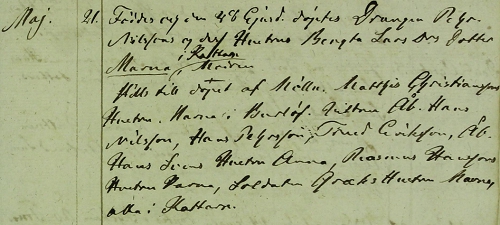 Maj. 21. Föddes och den 28 Ejusd. döptes Drängen Pehr
Nilssons och dess Hustrus Bengta Lars Drs Dotter
Marna, i Kattarp
hölls till döpet af Mölln. Mattis Christiansson
Hustru Marna i Burlöf. Vittnen Åb. Hans
Nilsson, Hans Pehrsson, Trued Eriksson, Åb.
Hans Hustru Anna, Rasmus Hanssons
Hustru Karna, Soldaten Hustru Marna,
alla i Kattarp.